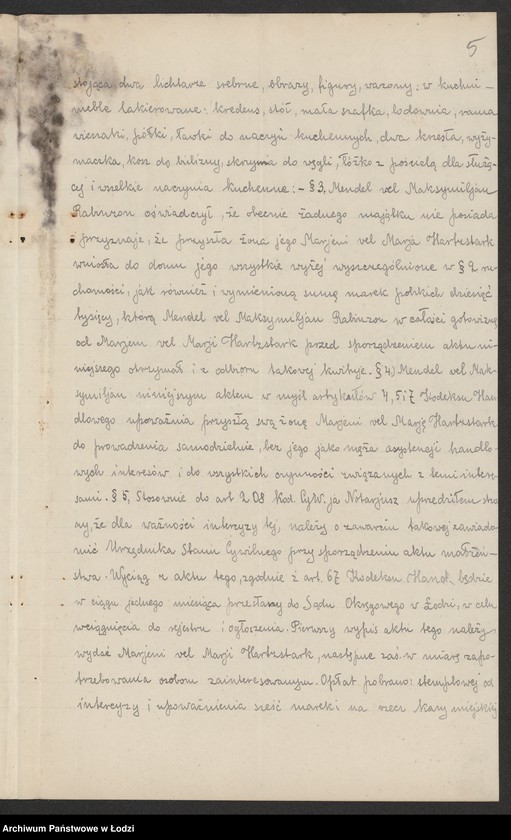 5
stojąca dwa lichtarze srebrne, obrazy, figury, wazony: w kuchni –
meble lakierowane: kredens, stół, mała szafka, lodownia, rama
wieszatki, półki, ławki do naczyń kuchennych, dwa krzesła, wyży-
maczka, kosz do bielizny, skrzynia do węgli, łóżko z pościelą dla służą-
cej i wszelkie naczynia kuchenne: – § 3, Mendel vel Maksymiljan
Rabinzon oświadczył, że obecnie żadnego majątku nie posiada
i przyznaje, że przyszła żona jego Marjem vel Marja Hartzstark
wniosła do domu jego wszystkie wyżej wyszczególnione w § 2 ru-
chomości, jak również i wymienioną sumę marek polskich dziesięć
tysięcy, którą Mendel vel Maksymiljan Rabinzon w całości gotowizną
od Marjem vel Marji Hartzstark przed sporządzeniem aktu ni-
niejszego otrzymał i z odbioru takowej kwituje. § 4) Mendel vel Mak-
symiljan niniejszym aktem w myśl artykułów 4, 5 i 7 Kodeksu Han
dlowego upoważnia przyszłą swą żonę Marjem vel Marję Hartzstark
do prowadzenia samodzielnie, bez jego jako męża asystencji handlo-
wych interesów, i do wszystkich czynności związanych z temi intere-
sami. § 5, Stosownie do art 208 Kod. Cyw. ja Notarjusz uprzedziłem stro
ny, że dla ważności intercyzy tej, należy o zawarciu takowej zawiado
mić Urzędnika Stanu Cywilnego przy sporządzeniu aktu małżeń-
stwa. Wyciąg z aktu tego, zgodnie z art. 67 Kodeksu Handl. będzie
w ciągu jednego miesiąca przesłany do Sądu Okręgowego w Łodzi, w celu
wciągnięcia do rejestru i ogłoszenia. Pierwszy wypis aktu tego należy
wydać Marjem vel Marji Hartzstark, następne zaś w miarę zapo-
trzebowania osobom zainteresowanym. Opłat pobrano: stemplowej od
intercyzy i upoważnienia sześć marek i na rzecz Kasy miejskiej
Archiwum Państwowe w Łodzi